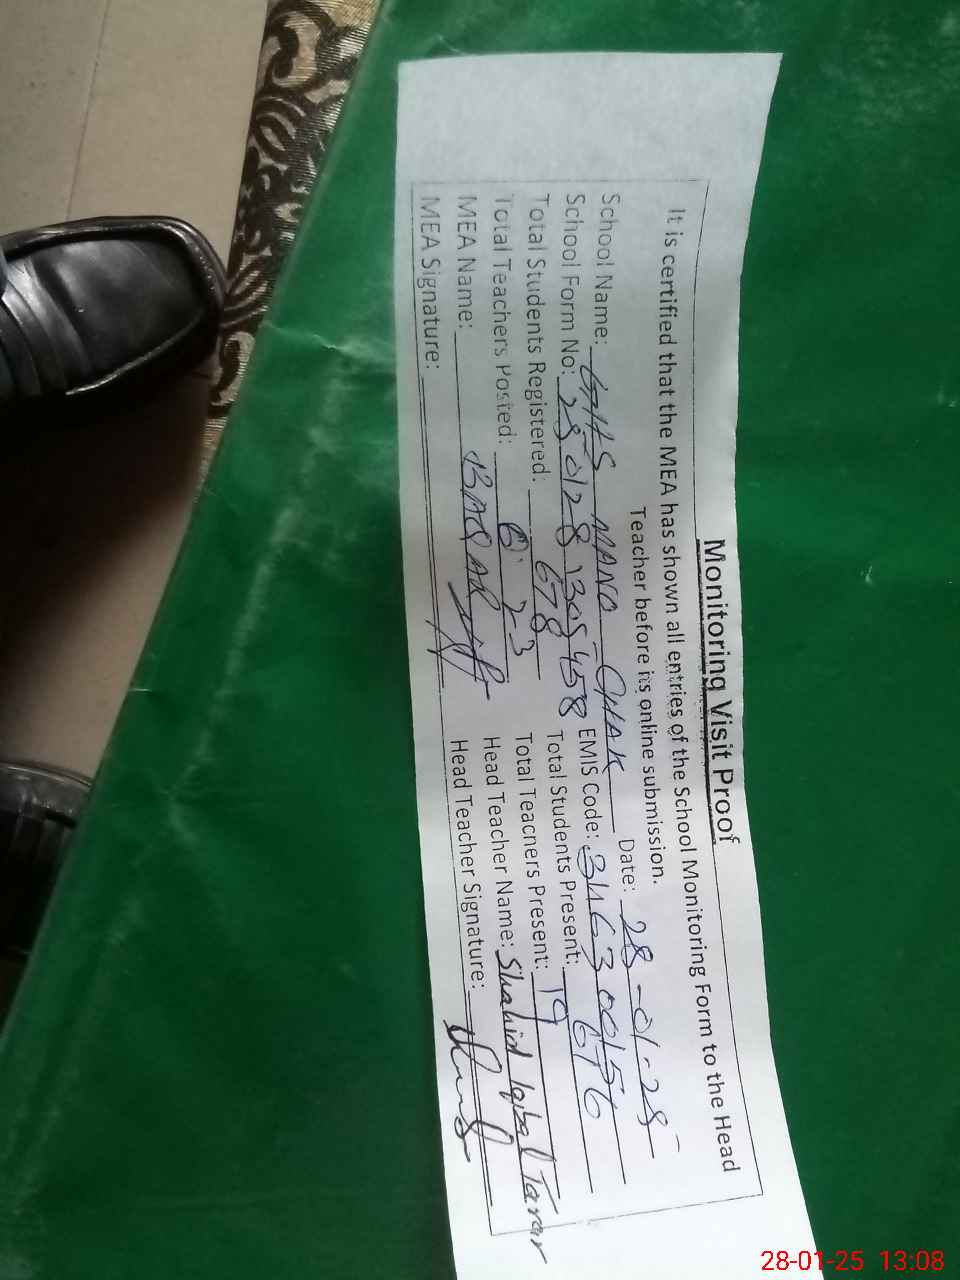 Monitoring Visit Proof
It is certified that the MEA has shown all entries of the School Monitoring Form to the Head
Teacher before its online submission.
School Name: GHS MANO-CHAK Date: 28-01-25
School Form No: 2501281305458 EMIS Code: 346300156
Total Students Registered: 678 Total Students Present: 676
Total Teachers Posted: 23 Total Teachers Present: 19
MEA Name: BAQAR Head Teacher Name: Shahid Iqbal Tarar
MEA Signature: Head Teacher Signature:
28-01-25 13:08